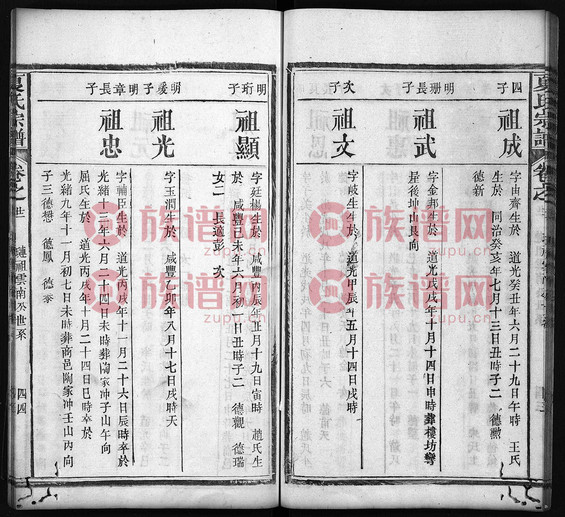 四子
祖成
字由齊生於 道光癸丑年六月二十九日午時 王氏
生於 同治癸亥年七月十三日丑時子二 德勲
德新
明珊長子
祖武
字金邦生於 道光戊戌年十月十四日申時葬樓坊彎
屋後坤山艮向
次子
祖文
字岐生生於 道光甲辰年五月十四日戌時
明珩子
祖顯
字廷楊生於 咸豐丙辰年五月十九日寅時 趙氏生
於 咸豐己未年六月初三日丑時子二 德觀 德瑞
女二 長適彭 次
明燰子
祖光
字玉潤生於 咸豐乙卯年八月十七日戌時夭
明章長子
祖忠
字補臣生於 道光丙戌年十一月二十六日辰時卒於
光緒十三年六月二十四日未時葬陶家冲子山午向
屈氏生於 道光丙戌年十月二十四日巳時卒於
光緒九年十一月初七日未時葬商邑陶家冲壬山丙向
子三德懋 德鳳 德
夏氏宗譜
卷之
璉祖雲南公世系
四四
夏氏宗譜
卷之
族谱网
zupu.cn
族谱网
zupu.cn
族谱网
zupu.cn
族谱网
zupu.cn